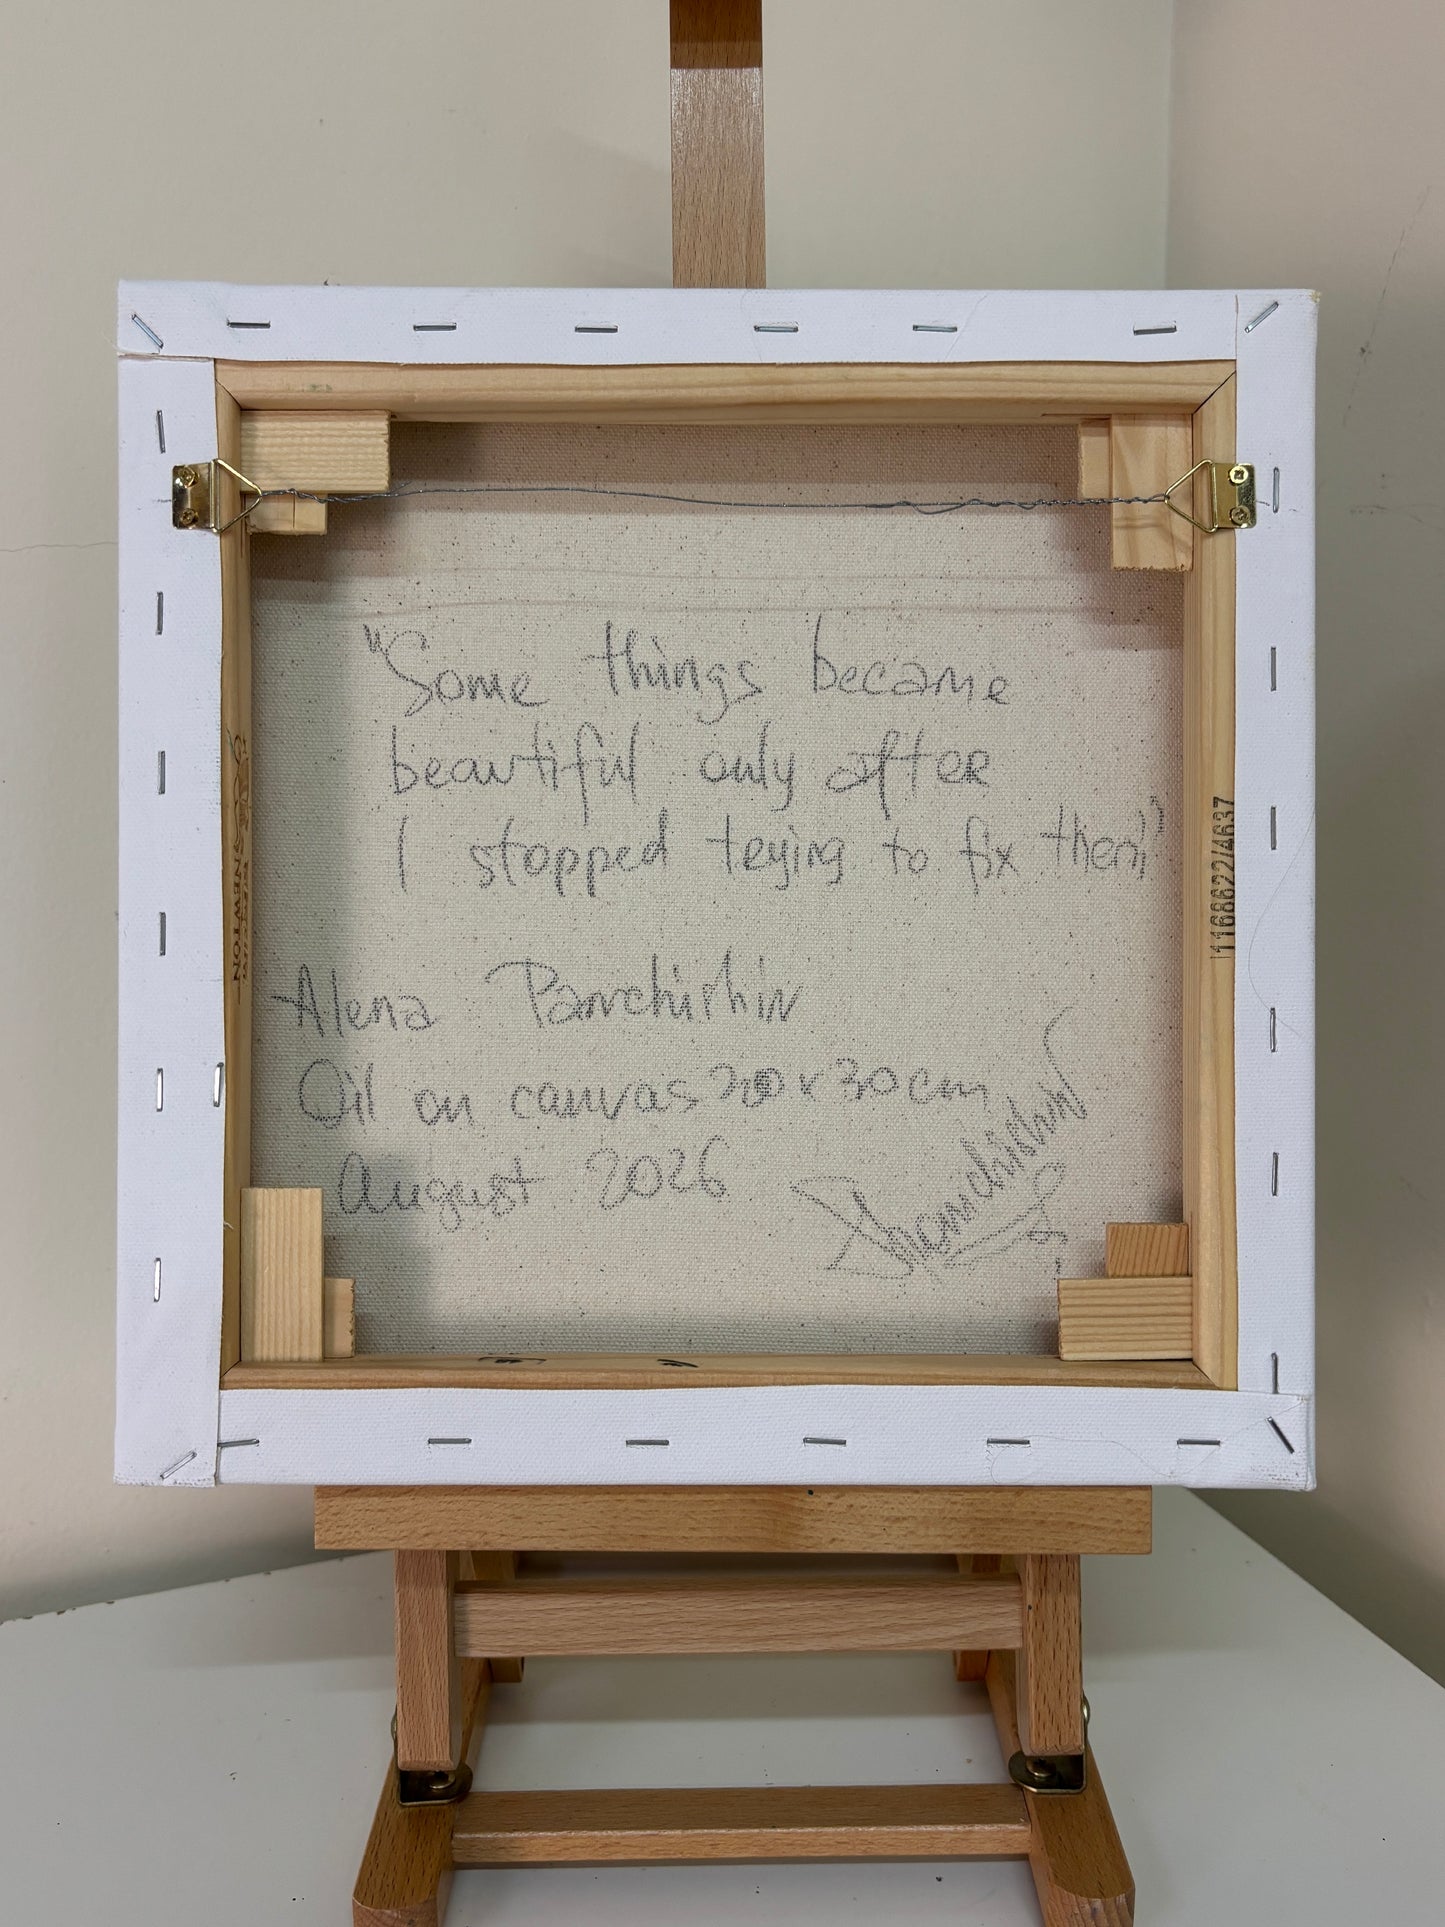 "Some things became
beautiful only after
I stopped trying to fix them"
Alena Panchishin
Oil on canvas 30 x 30 cm
August 2026
Panchishin
WINSOR & NEWTON
11686221/4637